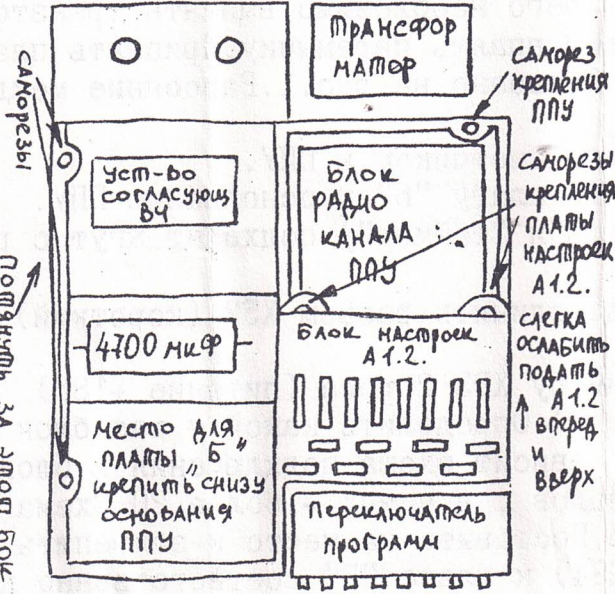 ТРАНСФОР
МАТОР
САМОРЕЗ
КРЕПЛЕНИЯ
ППУ
САМОРЕЗЫ
УСТ-ВО
СОГЛАСУЮЩ
ВЧ
БЛОК
РАДИО
КАНАЛА
ППУ
САМОРЕЗЫ
КРЕПЛЕНИЯ
ПЛАТЫ
НАСТРОЕК
А1.2.
4700 мкФ
БЛОК НАСТРОЕК
А1.2.
СЛЕГКА
ОСЛАБИТЬ
ПОДАТЬ
А1.2
ВПЕРЕД
И
ВВЕРХ
МЕСТО ДЛЯ
ПЛАТЫ „Б"
КРЕПИТЬ СНИЗУ
ОСНОВАНИЯ
ППУ
Переключатель
программ
ПОТЯНУТЬ ЗА ЭТОТ БОК